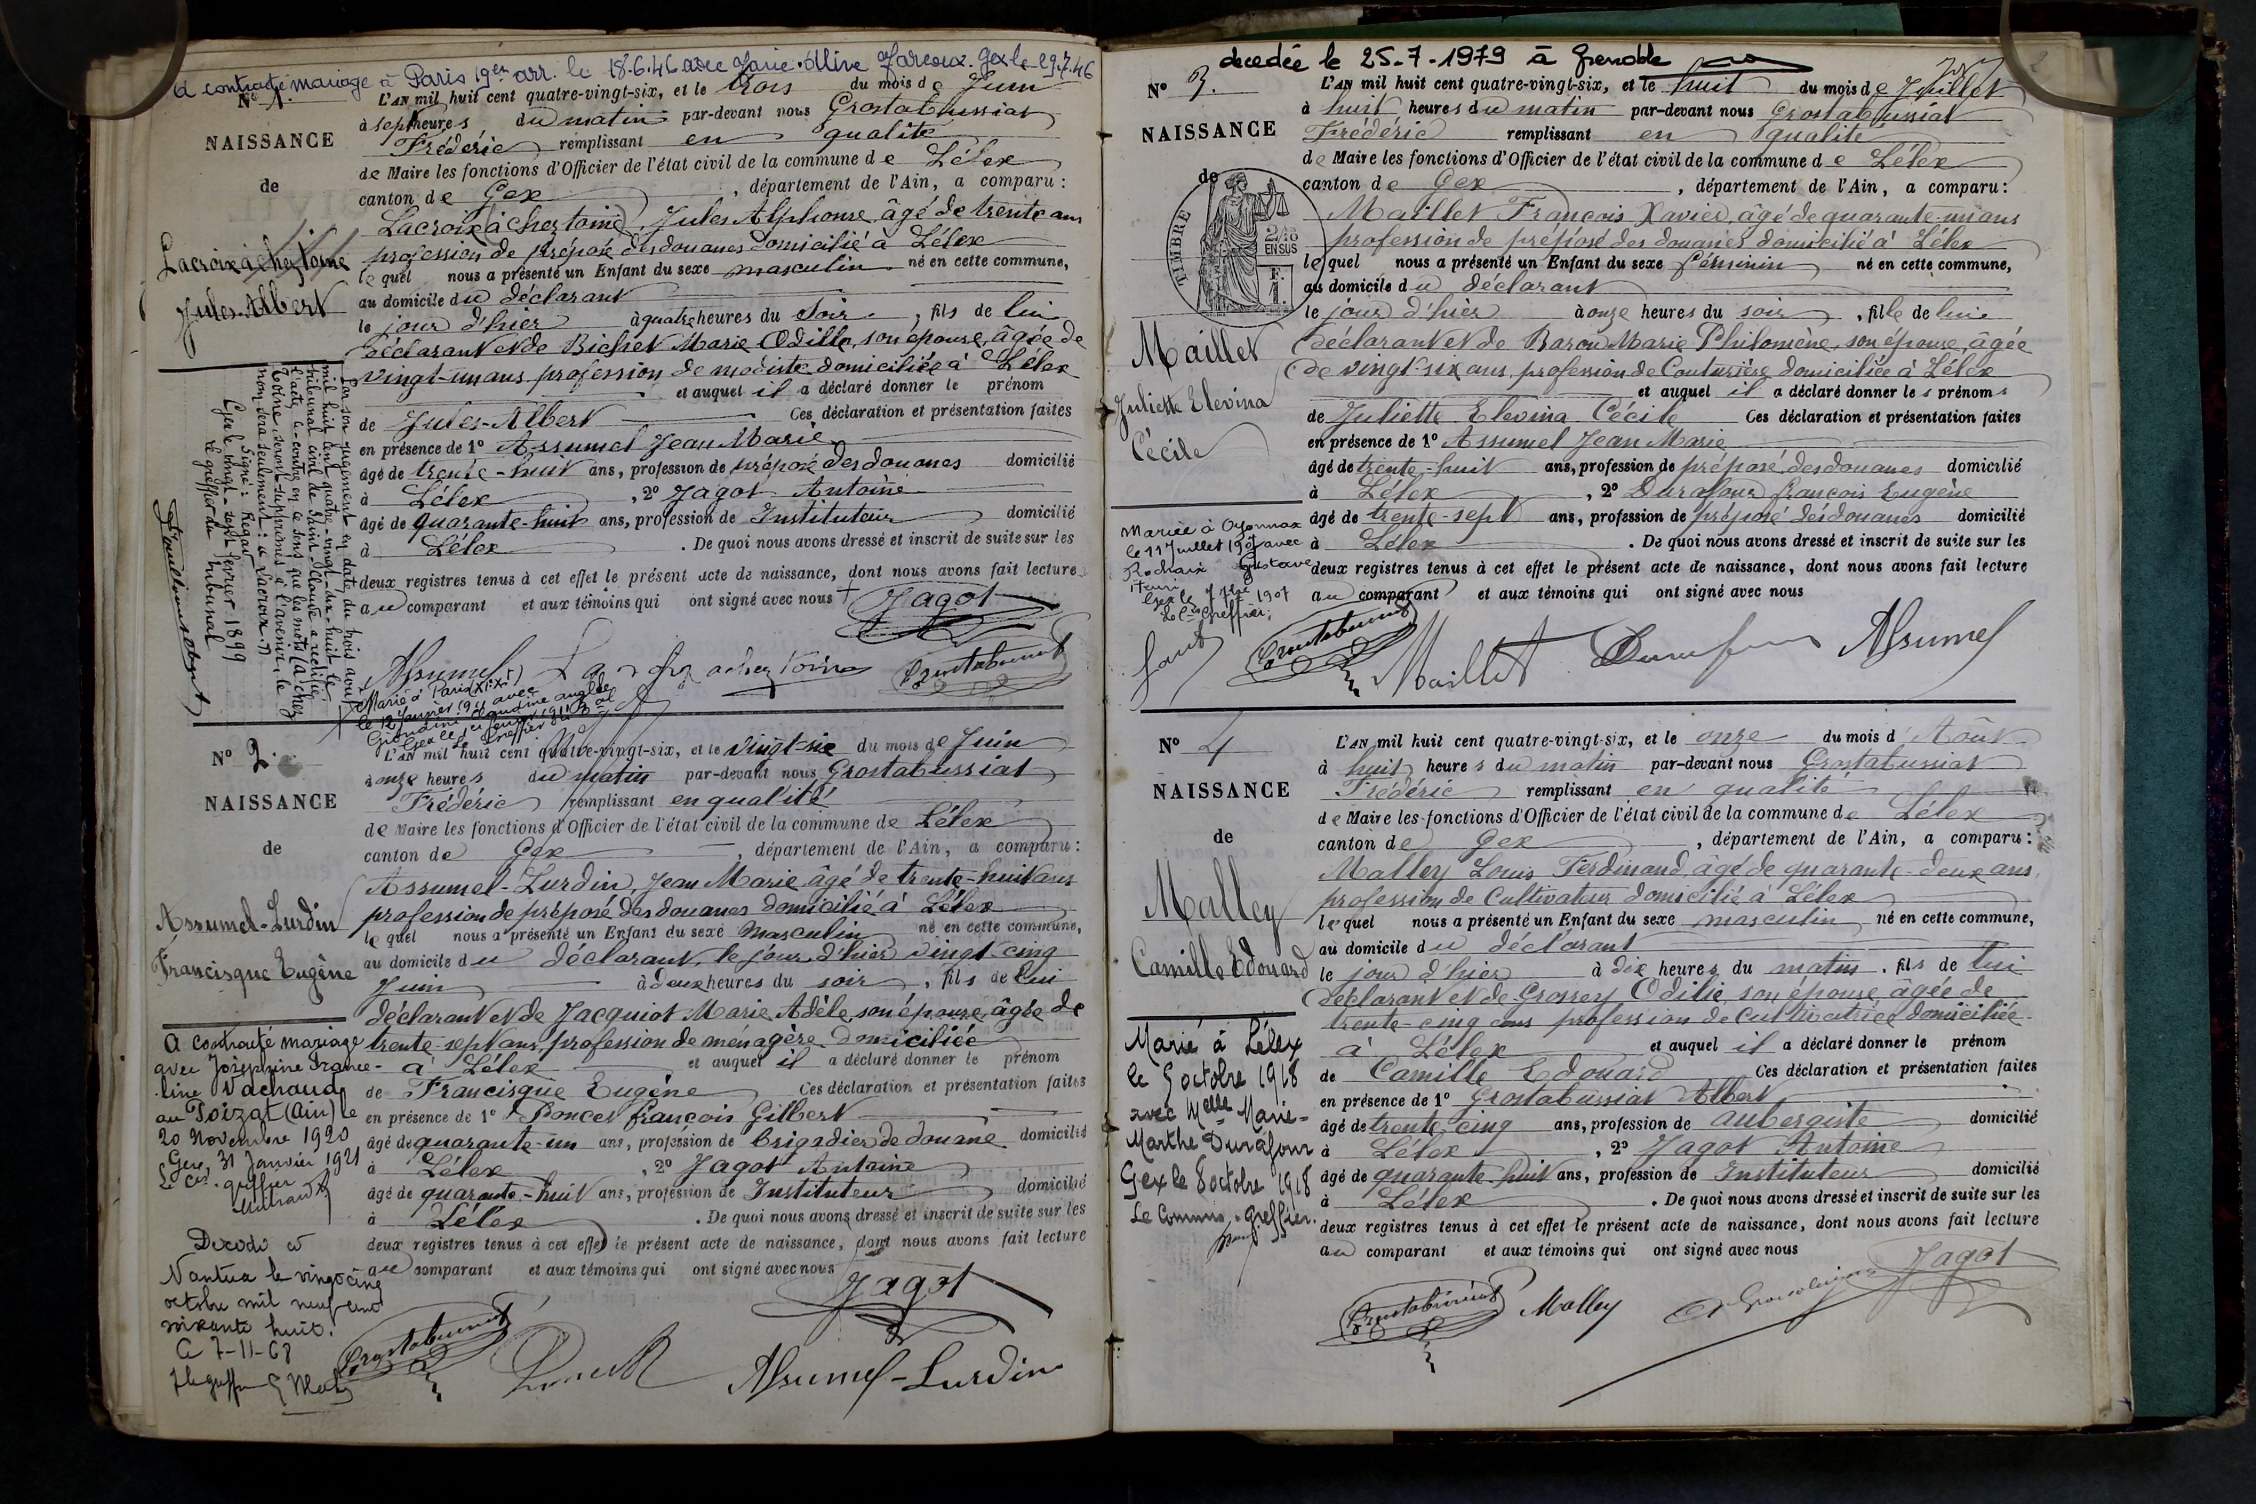 a contracté mariage à Paris 19er arr. le 18.6.46 avec Marie Alline Gex le 29.7.46
N° 1.
NAISSANCE
de
Lacroix à chez toine
Jules-Albert
L'AN mil huit cent quatre-vingt-six, et le trois du mois de Juin
à sept heures du matin par-devant nous Grostabussiat
Frédéric remplissant en qualité
de Maire les fonctions d'Officier de l'état civil de la commune de Lélex
canton de Gex, département de l'Ain, a comparu :
Lacroix à chez toine, Jules Alphonse âgé de trente ans
profession de préposé des douanes domicilié à Lélex
lequel nous a présenté un Enfant du sexe masculin né en cette commune,
au domicile du déclarant
le jour d'hier à quatre heures du soir, fils de lui
déclarant et de Bichet Marie Odille, son épouse, âgée de
vingt-un ans profession de modiste domiciliée à Lélex
et auquel il a déclaré donner le prénom
de Jules-Albert Ces déclaration et présentation faites
en présence de 1° Assumel Jean Marie
âgé de trente-huit ans, profession de préposé des douanes domicilié
à Lélex, 2° Jagot Antoine
âgé de quarante-huit ans, profession de Instituteur domicilié
à Lélex. De quoi nous avons dressé et inscrit de suite sur les
deux registres tenus à cet effet le présent acte de naissance, dont nous avons fait lecture
au comparant et aux témoins qui ont signé avec nous
Jagot
Assumel Lacroix achez toine Grostabussiat
Par son jugement en date du trois août
mil huit cent quatre-vingt-dix-huit le
tribunal civil de Saint Claude a rectifié
l'acte ci-contre en ce sens que les mots (à chez
toine seront supprimés à l'avenir, le
nom sera seulement: « Lacroix. »
Signé: Regad
Gex le vingt-sept février 1899
Le greffier du tribunal
Marié à Paris (XIX)
le 12 Janvier 1911 avec
Claudine Angèle
N° 2.
NAISSANCE
de
Assumel-Lurdin
Francisque Eugène
L'AN mil huit cent quatre-vingt-six, et le vingt-six du mois de Juin
à onze heures du matin par-devant nous Grostabussiat
Frédéric remplissant en qualité
de Maire les fonctions d'Officier de l'état civil de la commune de Lélex
canton de Gex, département de l'Ain, a comparu :
Assumel-Lurdin, Jean Marie âgé de trente-huit ans
profession de préposé des douanes domicilié à Lélex
lequel nous a présenté un Enfant du sexe masculin né en cette commune,
au domicile du déclarant, le jour d'hier vingt-cinq
Juin à deux heures du soir, fils de lui
déclarant et de Jacquiot Marie Adèle, son épouse, âgée de
trente-sept ans, profession de ménagère domiciliée
à Lélex et auquel il a déclaré donner le prénom
de Francisque Eugène Ces déclaration et présentation faites
en présence de 1° Poncet françois Gilbert
âgé de quarante-un ans, profession de brigadier de douane domicilié
à Lélex, 2° Jagot Antoine
âgé de quarante-huit ans, profession de Instituteur domicilié
à Lélex. De quoi nous avons dressé et inscrit de suite sur les
deux registres tenus à cet effet le présent acte de naissance, dont nous avons fait lecture
au comparant et aux témoins qui ont signé avec nous
Jagot
Grostabussiat Poncet Assumel-Lurdin
A contracté mariage
avec Joséphine France-
line Vachaud
au Poizat (Ain) le
20 Novembre 1920
Gex, 31 Janvier 1921
Le Cis. greffier
Décédé à
Nantua le vingt cinq
octobre mil neuf cent
soixante huit.
A 7-11-68
decedée le 25-7-1979 à Grenoble
N° 3.
NAISSANCE
de
TIMBRE
2/10 EN SUS
F. 1.
Maillet
Juliette Elevina
Cécile
L'AN mil huit cent quatre-vingt-six, et le huit du mois de Juillet
à huit heures du matin par-devant nous Grostabussiat
Frédéric remplissant en qualité
de Maire les fonctions d'Officier de l'état civil de la commune de Lélex
canton de Gex, département de l'Ain, a comparu :
Maillet François Xavier, âgé de quarante-un ans
profession de préposé des douanes domicilié à Lélex
lequel nous a présenté un Enfant du sexe féminin né en cette commune,
au domicile du déclarant
le jour d'hier à onze heures du soir, fille de lui
déclarant et de Baron Marie Philomène, son épouse, âgée
de vingt-six ans, profession de Couturière domiciliée à Lélex
et auquel il a déclaré donner les prénoms
de Juliette Elevina Cécile Ces déclaration et présentation faites
en présence de 1° Assumel Jean Marie
âgé de trente-huit ans, profession de préposé des douanes domicilié
à Lélex, 2° Durafour françois Eugène
âgé de trente-sept ans, profession de préposé des douanes domicilié
à Lélex. De quoi nous avons dressé et inscrit de suite sur les
deux registres tenus à cet effet le présent acte de naissance, dont nous avons fait lecture
au comparant et aux témoins qui ont signé avec nous
Grostabussiat Maillet Durafour Assumel
Mariée à Oyonnax
le 11 Juillet 1907 avec
Rochaix Gustave
Henri
Gex le 1907
Le Cis Greffier:
N° 4
NAISSANCE
de
Malley
Camille Edouard
L'AN mil huit cent quatre-vingt-six, et le onze du mois d'Août
à huit heures du matin par-devant nous Grostabussiat
Frédéric remplissant en qualité
de Maire les fonctions d'Officier de l'état civil de la commune de Lélex
canton de Gex, département de l'Ain, a comparu :
Malley Louis Ferdinand, âgé de quarante-deux ans,
profession de Cultivateur domicilié à Lélex
lequel nous a présenté un Enfant du sexe masculin né en cette commune,
au domicile du déclarant
le jour d'hier à dix heures du matin, fils de lui
déclarant et de Grossey Odilie, son épouse, âgée de
trente-cinq ans profession de Cultivatrice domiciliée
à Lélex et auquel il a déclaré donner le prénom
de Camille Edouard Ces déclaration et présentation faites
en présence de 1° Grostabussiat Albert
âgé de trente cinq ans, profession de aubergiste domicilié
à Lélex, 2° Jagot Antoine
âgé de quarante-huit ans, profession de Instituteur domicilié
à Lélex. De quoi nous avons dressé et inscrit de suite sur les
deux registres tenus à cet effet le présent acte de naissance, dont nous avons fait lecture
au comparant et aux témoins qui ont signé avec nous
Jagot
Grostabussiat Malley
Marié à Lélex
le 5 octobre 1918
avec Melle Marie-
Marthe Durafour
Gex le 8 octobre 1918
Le Commis-Greffier.